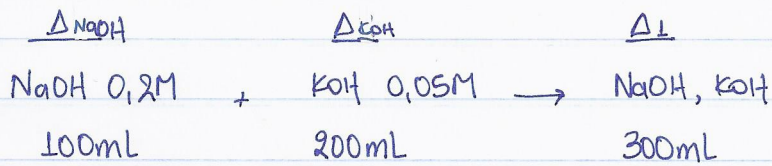 ΔNaOH ΔKOH Δ1
NaOH 0,2M + KOH 0,05M → NaOH, KOH
100mL 200mL 300mL